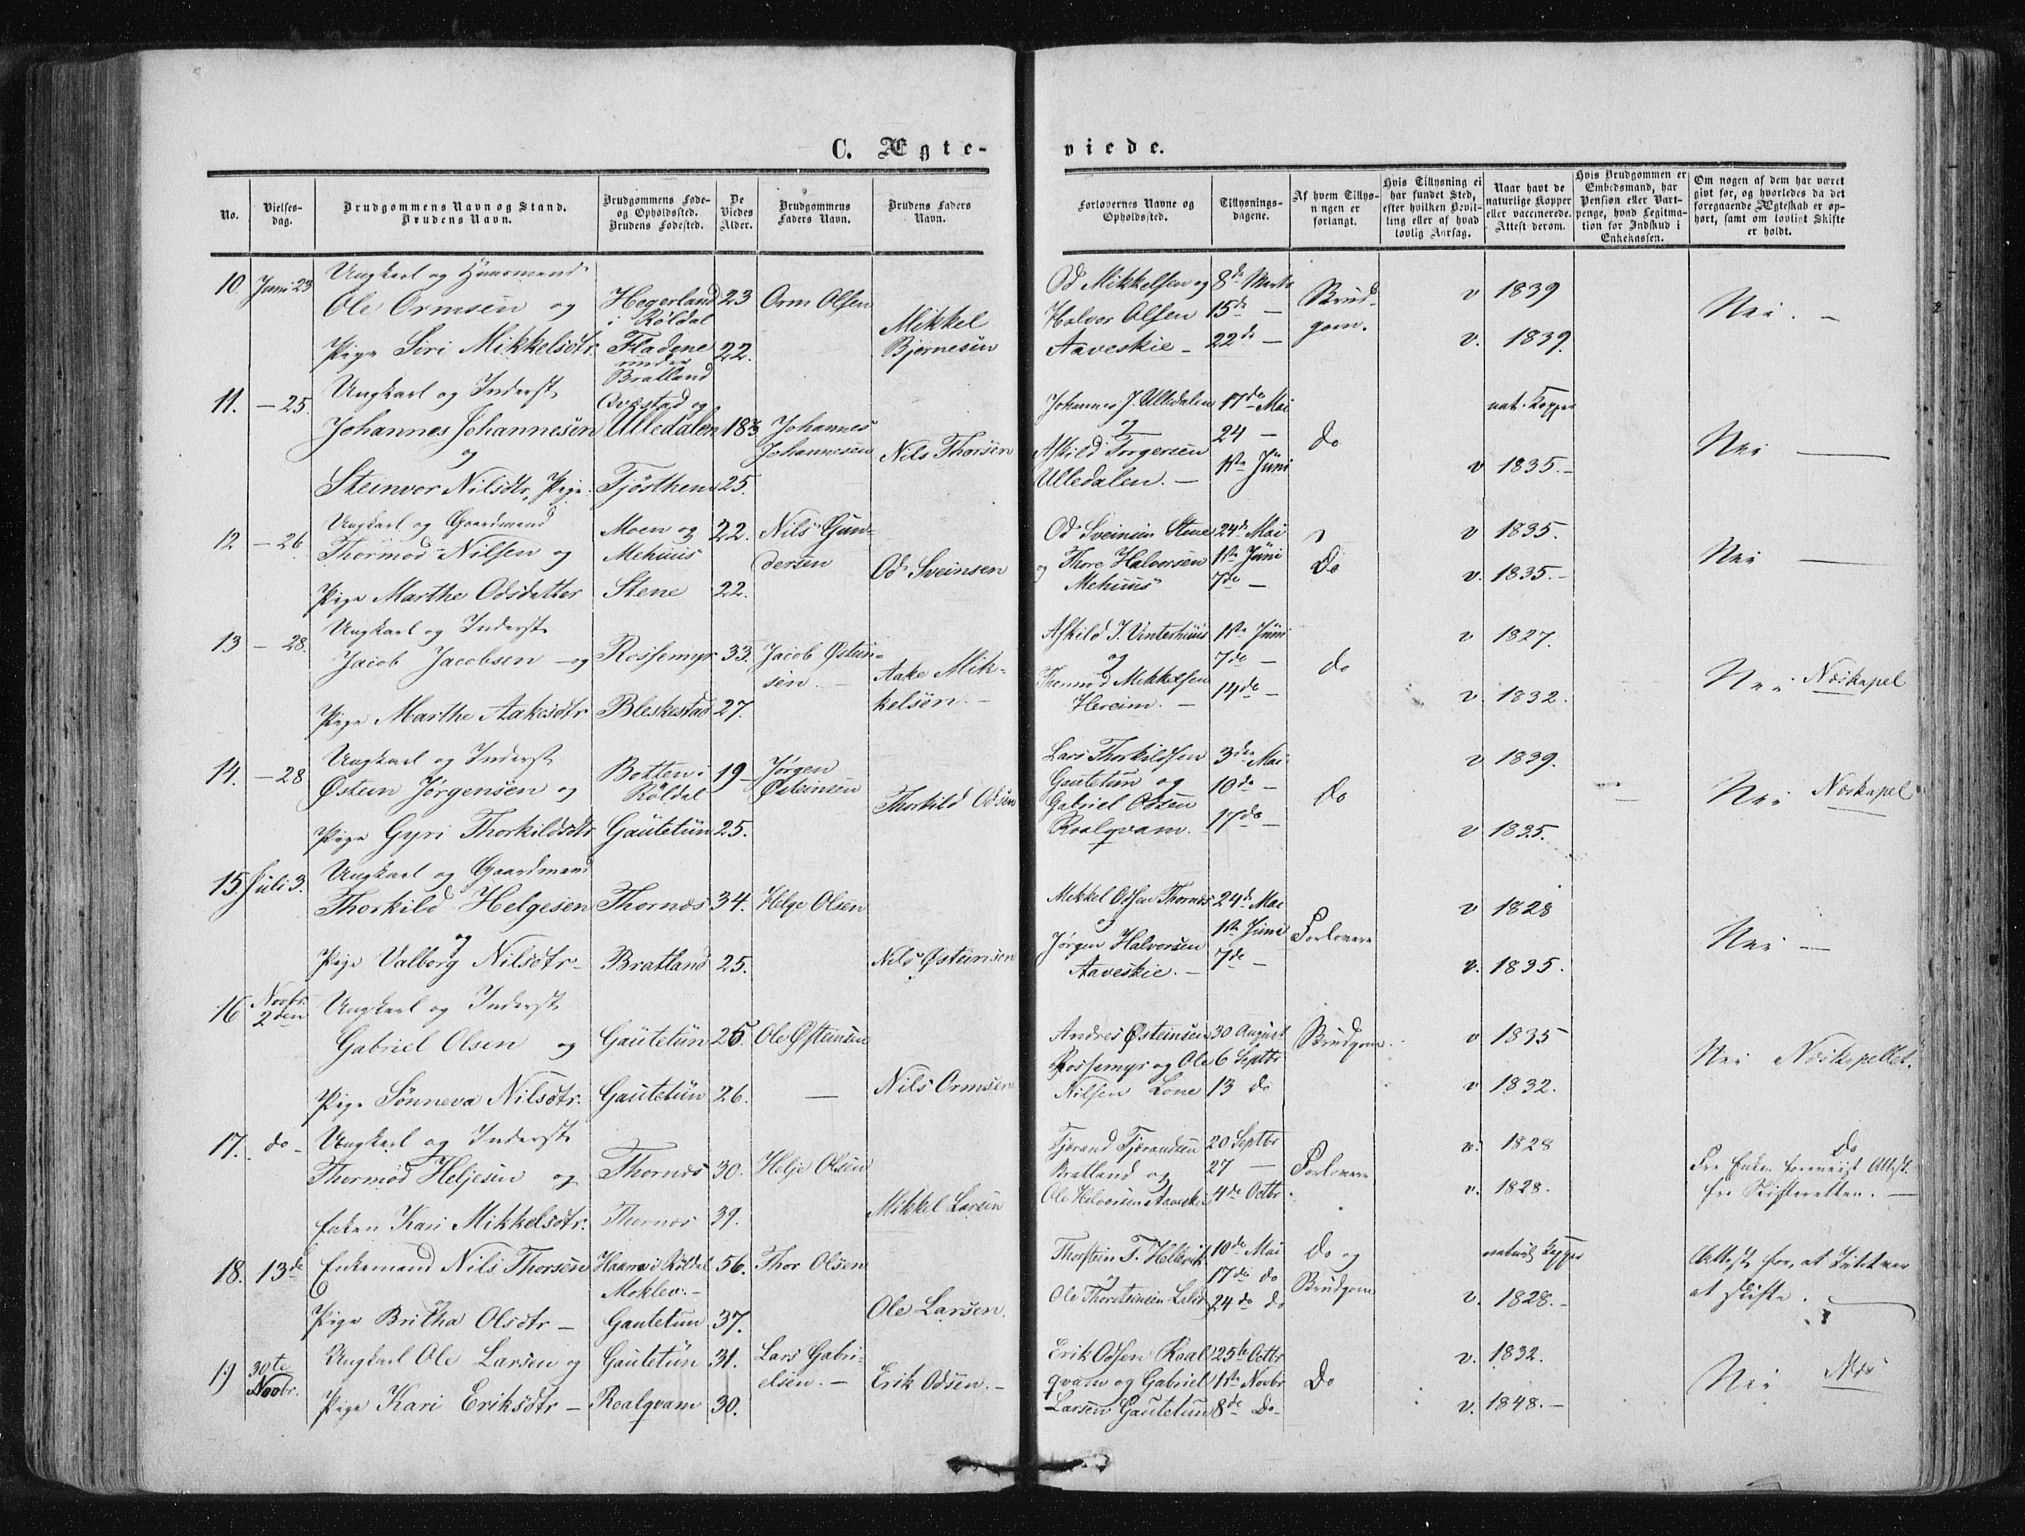 C. Ægte-
No.
Vielses-
dag.
Brudgommens Navn og Stand.
Brudens Navn.
Brudgommens Føde-
og Opholdssted.
Brudens Fødested.
De
Viedes
Alder.
Brudgommens
Faders Navn.
Brudens Faders
Navn.
10. Juni 23
Ungkarl og Huusmand
Ole Ormsen og Hegerland 23 Orm Olsen
i Røldal
Mikkel
Pige Siri Mikkelsdtr. Fladene 22. Bjørnesen
under
Bratland
11. — 25. Ungkarl og Inderst Qvæstad og
Johannes Johannesen Ulledalen Johannes
og Johannesen Nils Thorsen
Steinvor Nilsdtr, Pige. Tjøsthem 25.
12 — 26 Ungkarl og Gaardmand Moen og 22. Nils Gun-
Thormod Nilsen og Mehuus dersen Od Sveinsen
Pige Marthe Odsdatter Stene 22.
13 — 28. Ungkarl og Inderst
Jacob Jacobsen — og Rossemyr 33. Jacob Østein-
sen. — Aake Mik-
Pige Marthe Aakesdtr Bleskestad 27. kelsen. —
14. — 28 Ungkarl og Inderst Botten i 19 — Jørgen
Østein Jørgensen og Røldal Østeinsen Thorkild Odsen
Pige Gyri Thorkildsdtr Gautetun 25.
15. Juli 3. Ungkarl og Gaardmand
Thorkild Helgesen Thornæs 34. Helge Olsen
og
Pige Valborg Nilsdtr — Bratland 25. Nils Østeinsen
16 Novbr. 2den Ungkarl og Inderst
Gabriel Olsen og Gautetun 25. Ole Østeinsen
Pige Sønneva Nilsdtr. Gautetun 26. — Nils Ormsen
17. do Ungkarl og Inderst
Thormod Heljesen og Thornæs 30. Helje Olsen
Enken Kari Mikkelsdtr. Thornæs 39. Mikkel Larsen
18. 13de Enkemand Nils Thorsen Haare i Røldal 56. Thor Olsen
Moklev. —
Pige Britha Olsdtr — Gautetun 37. Ole Larsen.
19 30te Novbr. Ungkarl Ole Larsen og Gautetun 31. Lars Gabri-
elsen. — Erik Odsen. —
Pige Kari Eriksdtr — Roalqvam 30.
viede.
Forlovernes Navne og
Opholdssted.
Tillysnings-
dagene.
Af hvem Tillys-
ningen er
forlangt.
Hvis Tillysning ei
har fundet Sted,
efter hvilken Bevil-
ling eller af hvad
lovlig Aarsag.
Naar havt de
naturlige Kopper
eller vaccinerede.
Attest derom.
Hvis Brudgommen er
Embedsmand, har
Pension eller Vart-
penge, hvad Legitima-
tion for Indskud i
Enkekassen.
Om nogen af dem har været
gift før, og hvorledes da det
foregaaende Ægteskab er op-
hørt, samt om lovligt Skifte
er holdt.
Od Mikkelsen og 8de Marts
Halvor Olsen 15de — Brud- v 1839 Nei. —
Aaveskie — 22de — gom. v. 1839.
Johannes J. Ulledalen 17de Mai nat. Kopper
og 24 — do Nei —
Askild Torgersen 1ste Juni v 1835. —
Ulledalen. —
Od Sveinsen Stene 24de Mai v 1835.
og Thore Halvorsen 1ste Juni Do Nei —
Mehuus 7de — v. 1835. —
Askild J. Vinterhuus 1ste Juni v 1827.
og 7de — do Nei Næskapel
Thormod Mikkelsen 14de —
Hereim. — v 1832.
Lars Thorkildsen 3die Mai v 1839.
Gautetun og 10de — Do Nei Næskapel
Gabriel Odsen
Roalqvam. 17de — v 1835.
Mikkel Odsen Thornæs 24de Mai v 1828
og 1ste Juni Forlovere Nei —
Jørgen Halvorsen
Aaveskie. — 7de — v. 1835.
Andres Østeinsen 30 August Brudgom. v 1835
Rossemyr og Ole 6 Septbr Nei Næskapellet.
Nilsen Lone 13 do v 1832.
Tjerand Tjerandsen 20 Septbr v. 1828 Do
Bratland og 27 — Forlovere For Enken foreviist Attest
Ole Halvorsen Aaveskie 4de Octbr v. 1828. fra Skifteretten. —
Thorstein T. Hellevik 10de Mai Do og naturl. Kopper Attest for, at Intet var
og 17de do Brudgom at skifte.
Ole Thorsteinsen 24de do v. 1828. —
Erik Odsen Roal 25de Octbr v. 1832.
qvam og Gabriel 1ste Novbr Do Nei Næs
Larsen Gautetun 8de Do — v. 1848. —